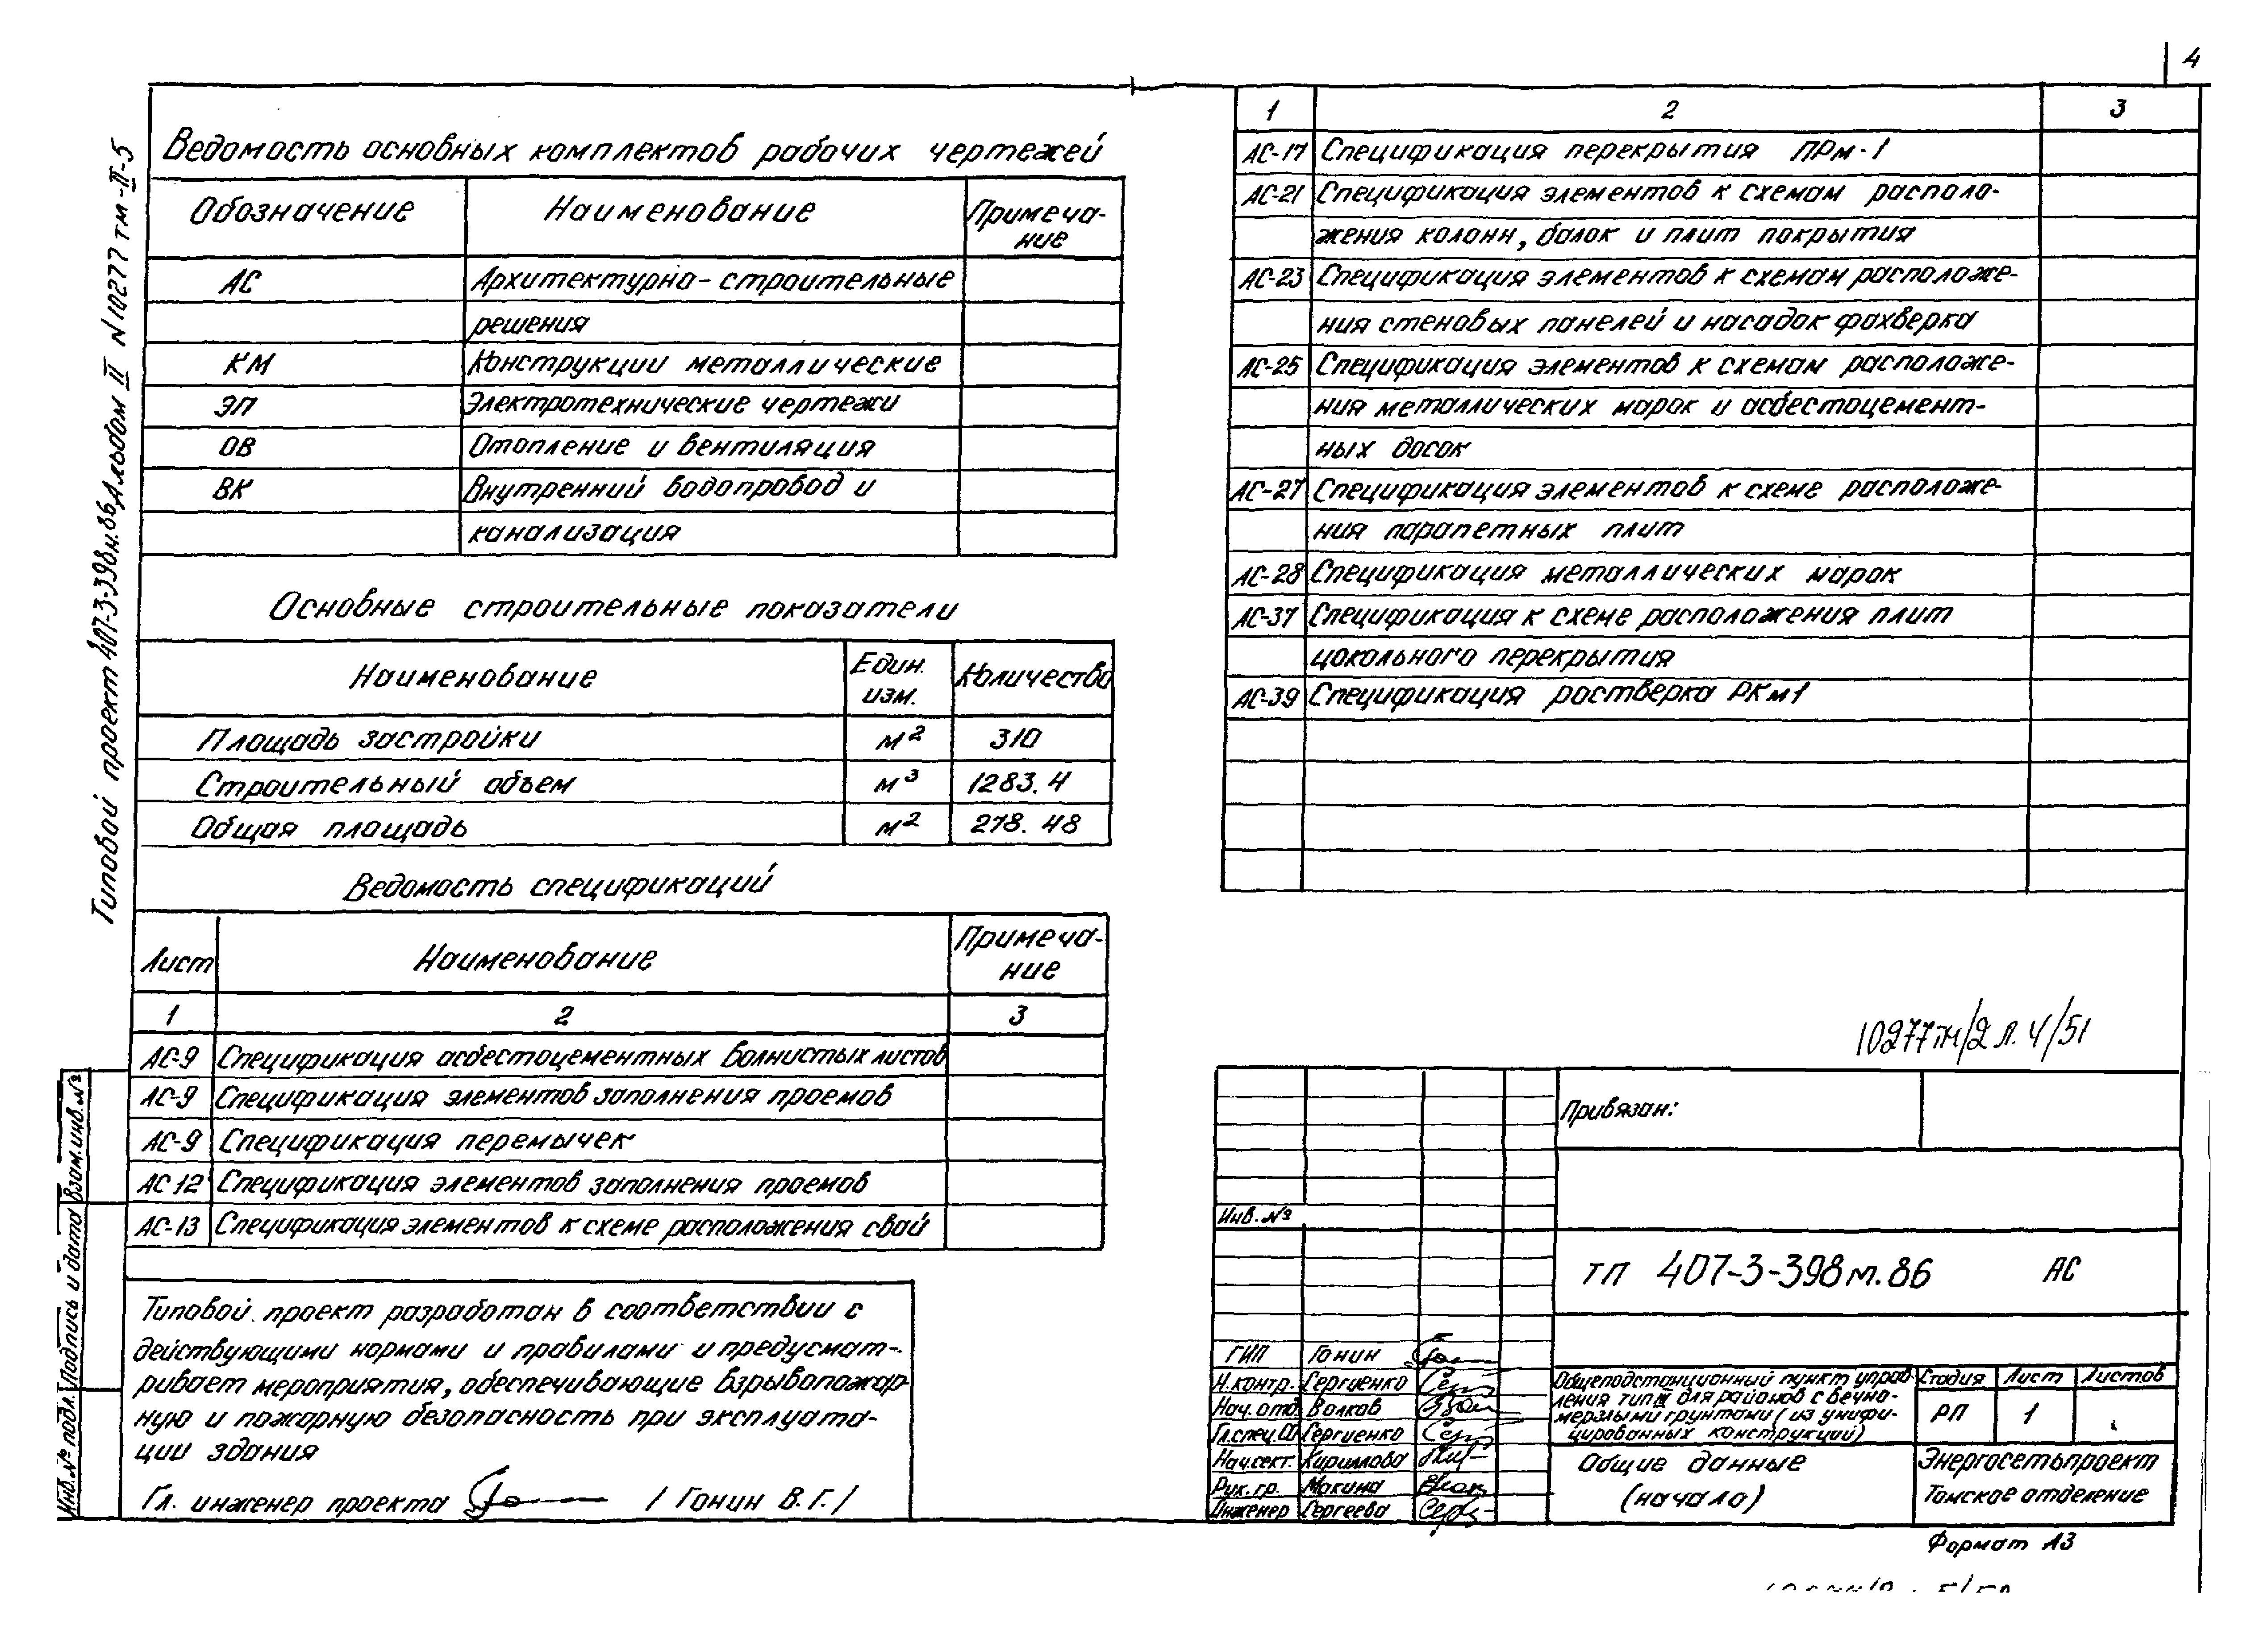 4
Типовой проект 407-3-398м.86 Альбом II N10277тм-II-5
Ведомость основных комплектов рабочих чертежей
Обозначение Наименование Примеча-
ние
АС Архитектурно-строительные
решения
КМ Конструкции металлические
ЭП Электротехнические чертежи
ОВ Отопление и вентиляция
ВК Внутренний водопровод и
канализация
Основные строительные показатели
Наименование Един. изм. Количество
Площадь застройки м² 310
Строительный объем м³ 1283.4
Общая площадь м² 278.48
Ведомость спецификаций
Лист Наименование Примеча-
ние
1 2 3
АС-9 Спецификация асбестоцементных волнистых листов
АС-9 Спецификация элементов заполнения проемов
АС-9 Спецификация перемычек
АС 12 Спецификация элементов заполнения проемов
АС-13 Спецификация элементов к схеме расположения свай
Типовой проект разработан в соответствии с
действующими нормами и правилами и предусмат-
ривает мероприятия, обеспечивающие взрывопожар-
ную и пожарную безопасность при эксплуата-
ции здания
Гл. инженер проекта / Гонин В.Г. /
Инв.№ подл. Подпись и дата Взам.инв.№
1 2 3
АС-17 Спецификация перекрытия ПРм-1
АС-21 Спецификация элементов к схемам располо-
жения колонн, балок и плит покрытия
АС-23 Спецификация элементов к схемам расположе-
ния стеновых панелей и насадок фахверка
АС-25 Спецификация элементов к схемам расположе-
ния металлических марок и асбестоцемент-
ных досок
АС-27 Спецификация элементов к схеме расположе-
ния парапетных плит
АС-28 Спецификация металлических марок
АС-37 Спецификация к схеме расположения плит
цокольного перекрытия
АС-39 Спецификация ростверка РКм1
10277тм/2 л. 4/51
Привязан:
Инв.№
ТП 407-3-398м.86 АС
ГИП Гонин
Н.контр. Сергиенко
Нач.отд Волков
Гл.спец. Сергиенко
Нач.сект. Кириллова
Рук.гр. Мокина
Инженер Сергеева
Общеподстанционный пункт управ
ления тип III для районов с вечно-
мерзлыми грунтами (из унифи-
цированных конструкций)
Стадия Лист Листов
РП 1
Общие данные
(начало)
Энергосетьпроект
Томское отделение
Формат А3